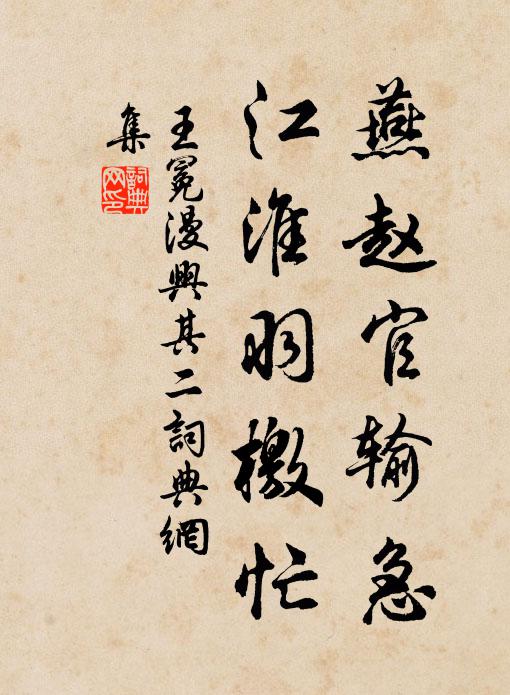 燕赵官输急
江淮羽檄忙
王冕漫興其二詞典網
集
詞典
网印